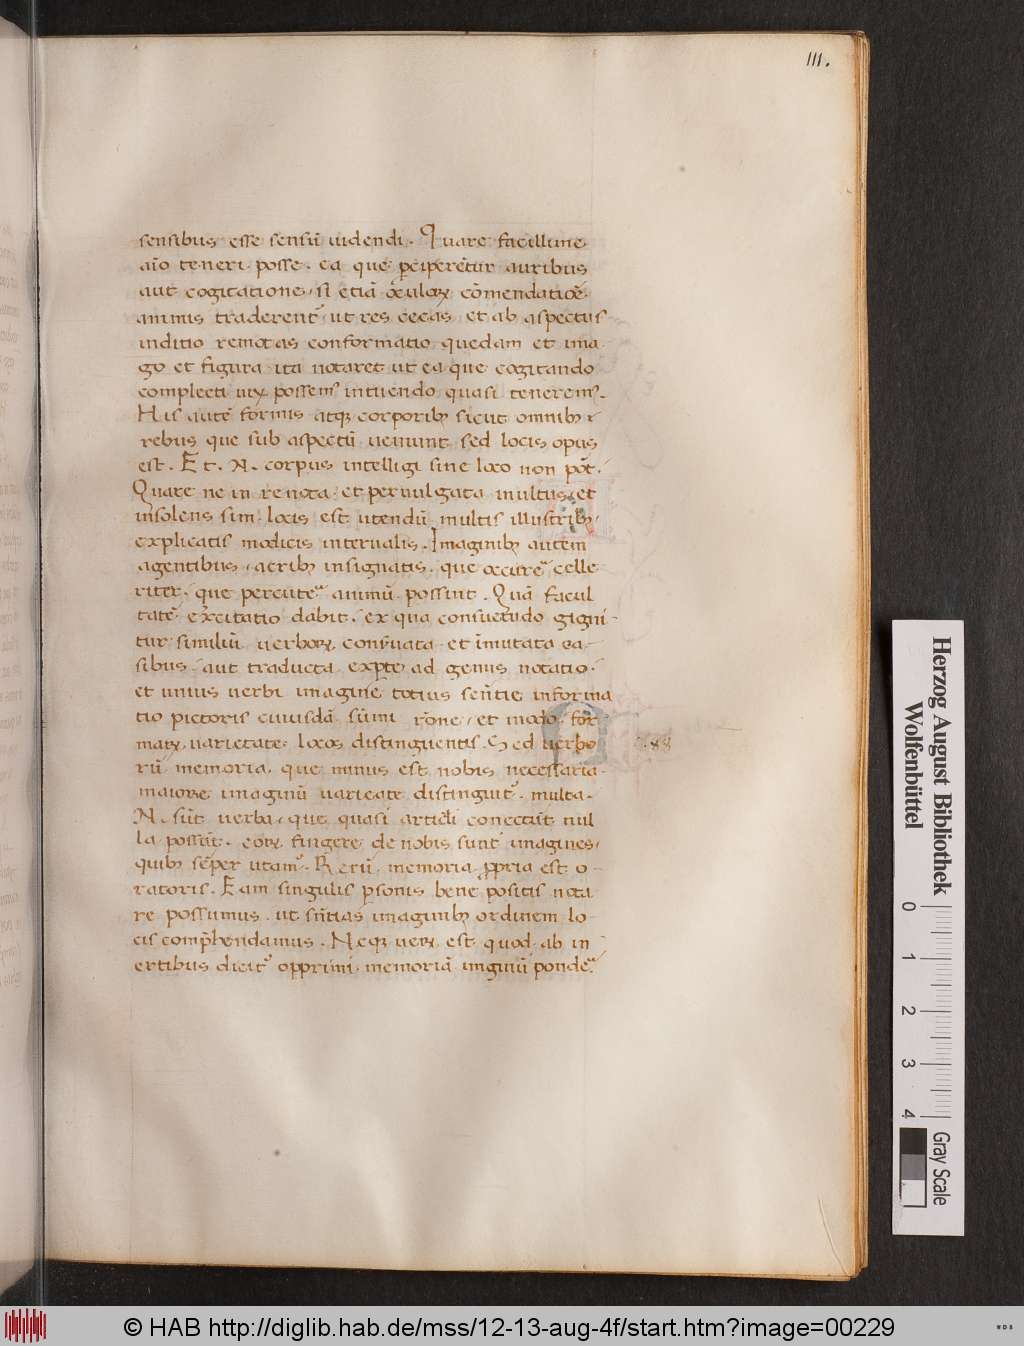 111.
sensibus esse sensū uidendi. Quare facillime
aīo teneri posse. ea que p̱ciperētur auribus
aut cogitatione, si etiā o̅culoꝝ cōmendatiōe
animis traderent᷑ ut res cecas et ab aspectus
inditio remotas conformatio quedam et ima
go et figura ita notaret ut ea que cogitando
complecti uix possem᷒ intuendo quasi tenerem᷒.
His autē formis atqꝫ corporibꝫ sicut omnibꝫ
rebus que sub aspectū ueniunt sed locis opus
est. Et. N. corpus intelligi sine loco non pōt.
Quare ne in re nota et peruulgata multus et
insolens sim. locis est utendū multis illustribꝫ
explicatis modicis interuallis. Imaginibꝫ autem
agentibus, acribꝫ insignatis. que occurē celle
riter. que percutē animū possint. Quā facul
tatē ex̄citatio dabit. ex qua consuetudo gigni
tur similiū uerboꝝ conūata et īmutata ca
sibus. aut traducta exp̱te ad genus notatio.
et unius uerbi imagine totius sen̄tie informa
tio pictoris cuiusdā sūmi rōne, et modo for
maꝝ uarietate locos distinguentis. Sed uerbo
rū memoria que minus est nobis necessaria
maiore imaginū uarieate distinguit᷑. multa.
N. sūt uerba, que quasi articl̄i conectūt nul
la possūt. eoꝝ fingere de nobis sunt imagines,
quibꝫ sēper utam᷑. Rerū memoria ꝓpria est o-
ratoris. Eam singulis ꝑsonis bene positis nota
re possumus. ut sn̄tias imaginibꝫ ordinem lo-
cis comp̄hendamus. Neqꝫ ueꝝ est quod ab in
ertibus dicit᷑ opprimi memoriā imginū pondē
Herzog August Bibliothek
Wolfenbüttel
0 1 2 3 4
Gray Scale
© HAB http://diglib.hab.de/mss/12-13-aug-4f/start.htm?image=00229